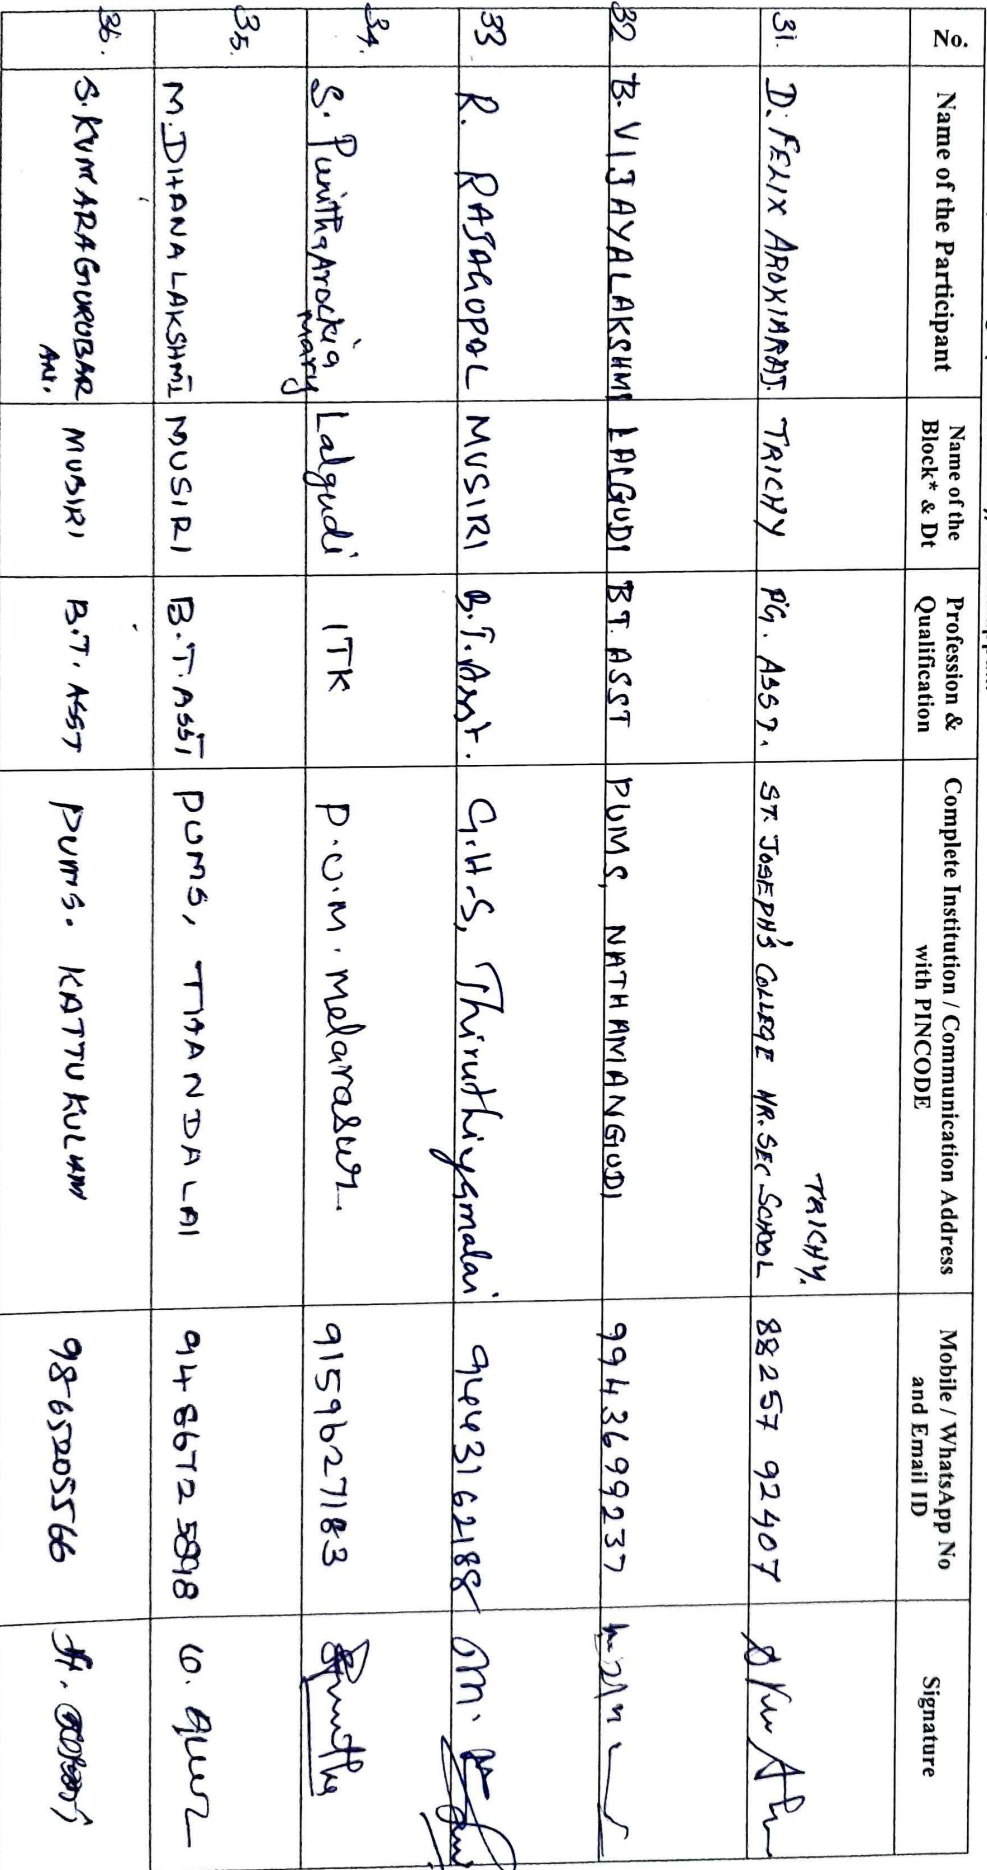 No.
Name of the Participant
Name of the
Block* & Dt
Profession &
Qualification
Complete Institution / Communication Address
with PINCODE
Mobile / WhatsApp No
and Email ID
Signature
31.
D. FELIX AROKIARAJ.
TRICHY
P.G. ASST.
ST. JOSEPH'S COLLEGE HR. SEC SCHOOL
TRICHY.
88257 92407
32
B. VIJAYALAKSHMI
LALGUDI
BT. ASST
PUMS, NATHAMANGUDI
9943699237
33
R. RAJAGOPAL
MUSIRI
B.T. Asst.
G.H.S, Thiruthiyamalai
9443162188
34.
S. Punitha Arockia
Mary
Lalgudi
ITK
P.U.M. Melarasur.
9159627183
Punitha
35.
M. DHANALAKSHMI
MUSIRI
B.T. ASST
PUMS, THANDALAI
36.
S. KUMARAGURUBAR
AN.
MUSIRI
B.T. ASST
PUMS. KATTUKULAM
9865205566